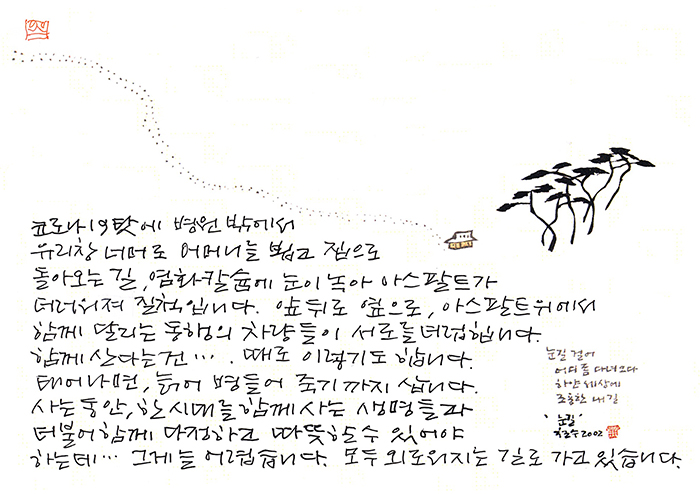 코로나19 탓에 병원 밖에서
유리창 너머로 어머니를 뵙고 집으로
돌아오는 길, 염화칼슘에 눈이 녹아 아스팔트가
더러워져 질척입니다. 앞뒤로 옆으로, 아스팔트위에서
함께 달리는 동행의 차량들이 서로를 더럽힙니다.
함께 산다는건… . 때로 이렇기도 합니다.
태어나면, 늙어 병들어 죽기까지 삽니다.
사는동안, 한시대를 함께 사는 생명들과
더불어 함께 다정하고 따뜻할수 있어야
하는데… 그게 늘 어렵습니다. 모두 외로워지는 길로 가고 있습니다.
눈길 걸어
어디쯤 다녀오다
하얀 세상에
조용한 내 길
'눈길'
2002